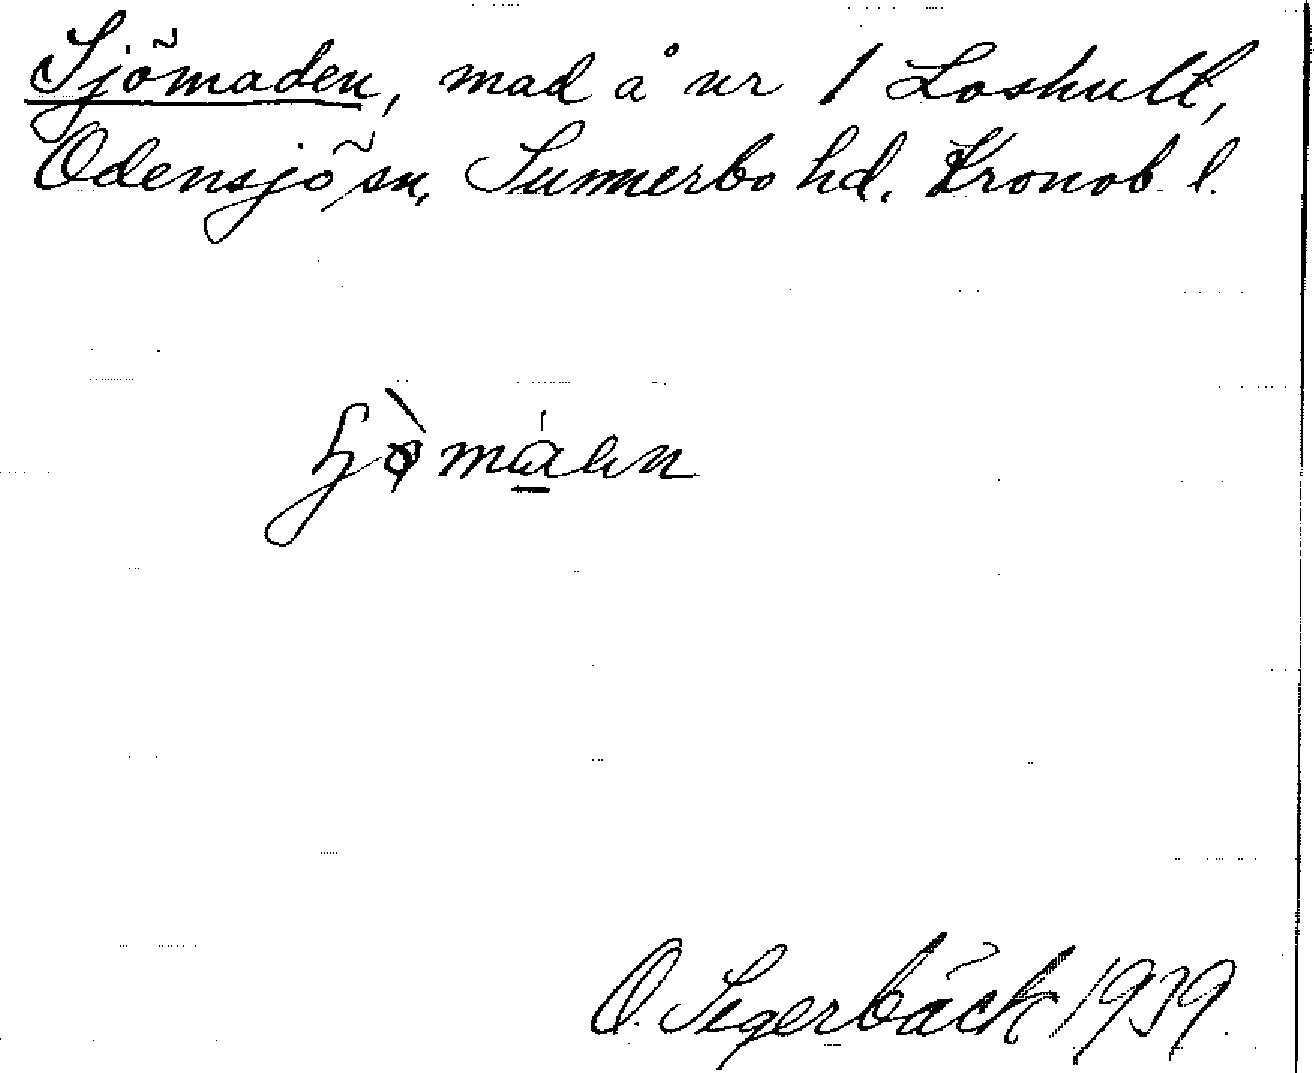 Sjömaden, mad å nr 1 Loshult,
Odensjö sn, Sunnerbo hd. Kronob. l.
O. Segerbäck 1939.